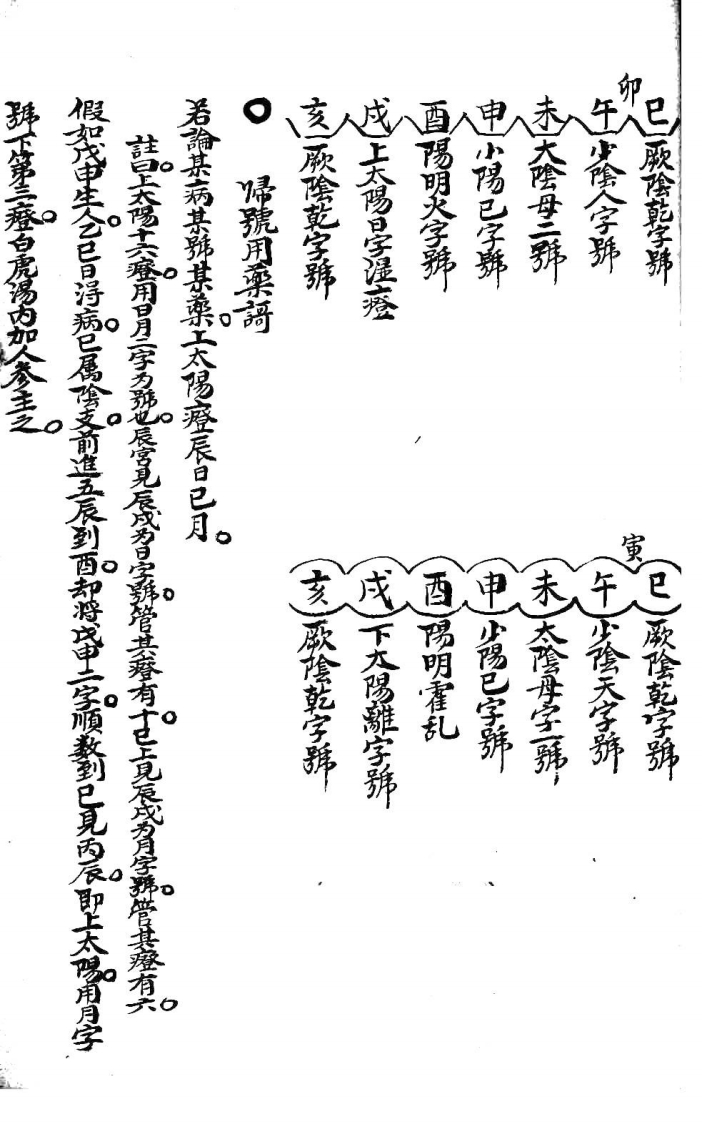 卯
巳 厥陰乾字號
午 少陰人字號
未 太陰母二號
申 小陽巳字號
酉 陽明火字號
戌 上太陽日字湿證
亥 厥陰乾字號
寅
巳 厥陰乾字號
午 少陰天字號
未 太陰母字一號
申 少陽巳字號
酉 陽明霍乱
戌 下太陽離字號
亥 厥陰乾字號
○ 歸號用藥謌
若論某病某號某藥。上太陽證辰日巳月。
註曰。上太陽十六證。用日月二字为號也。辰宮見辰戌为日字號。管其證有十。巳上見辰戌为月字號。管其證有六。
假如戊申生人。乙巳日淂病。巳属陰支。前進五辰到酉。却将戊申二字。順数到巳見丙辰。即上太陽。用月字
號下第三證。白虎湯内加人参主之。